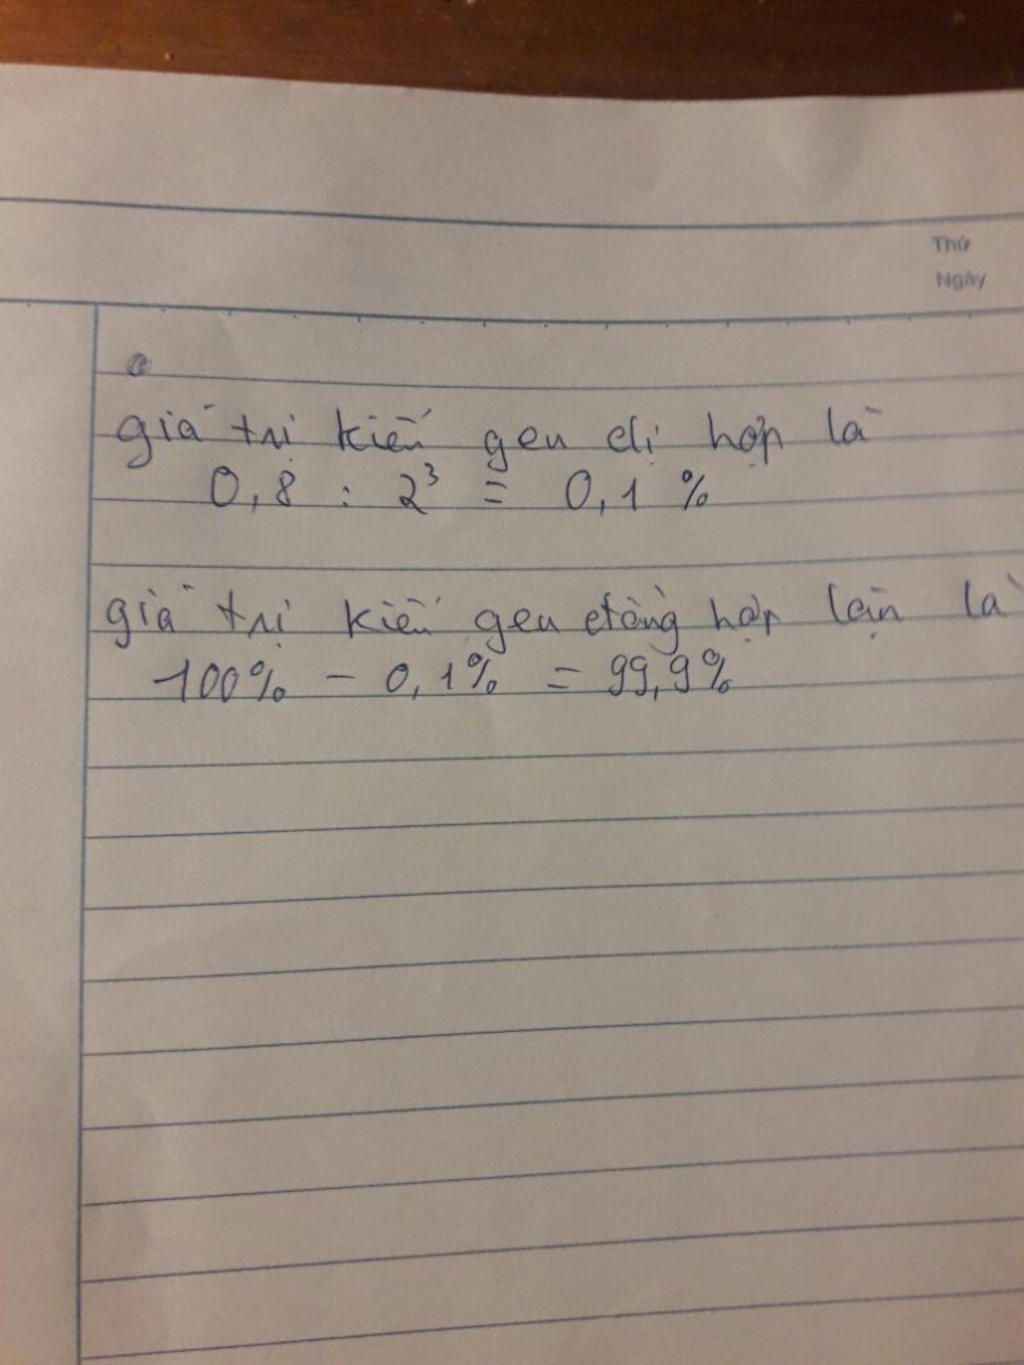 Thứ
Ngày
giá trị kiểu gen dị hợp là
0,8 : 2³ = 0,1 %
giá trị kiểu gen đồng hợp lặn là
100% - 0,1% = 99,9%